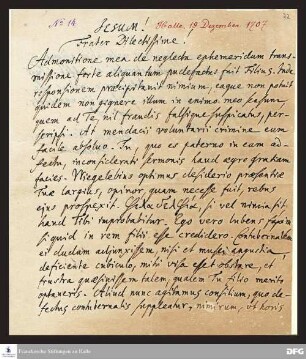 No 14.
72
JESUM! Halle, 19 Dezember 1707
Frater Dilectissime!
Admonitione mea de neglecta ephemeridum trans-
missione forte aliquantum pudefactus fuit Filius. Inde
responsionem præcipitavit nimium, eaque non potuit
quidem non gignere illum in animo meo sensum,
quem ad Te, nil fraudis falsique suspicatus, per-
scripsi. At mendacii voluntarii crimine eum
facile absolvo. Tu, quo es paterno in eum ad-
fectu, inconsiderati sermonis haud ægre gratiam
facies. Wiegelebius optimus desiderio præsentiæ
Tuæ largius, opinor, quam necesse fuit, rebus
eius prospexit. si vel nimia sit
haud Tibi improbabitur. Ego vero lubens
si quid in rem Tibi esse credidero. contubernalem
ei duelum adjunxissem, nisi et musei angustia,
deficiente cubiculo, mihi visa esset obstare, et
frustra quæsivissem talem, qualem Tu filio merito
optaveris. Aliud nunc agitamus consilium, quo de-
fectus contubernalis suppleatur, nimirum, ut horis
Franckesche Stiftungen zu Halle
DFG